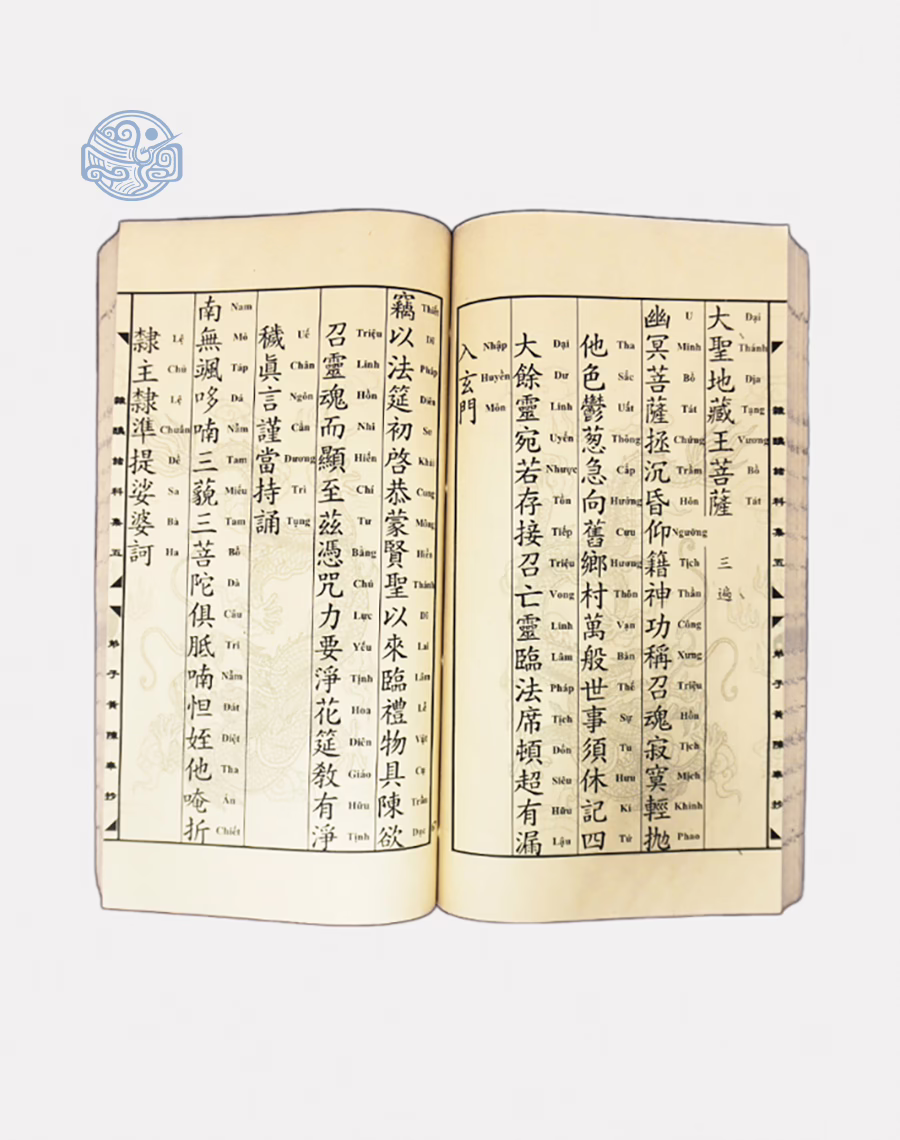 諸科集五
弟子黃陳奉抄
大聖地藏王菩薩 三遍
Đại Thánh Địa Tạng Vương Bồ Tát
幽冥菩薩拯沉昏仰籍神功稱召魂寂寞輕抛
U Minh Bồ Tát Chứng Trầm Hôn Ngưỡng Tịch Thần Công Xưng Triệu Hồn Tịch Mịch Khinh Phao
他色鬱葱急向舊鄉村萬般世事須休記四
Tha Sắc Uất Thông Cấp Hướng Cựu Hương Thôn Vạn Bàn Thế Sự Tu Hưu Kí Tứ
大餘靈宛若存接召亡靈臨法席頓超有漏
Đại Dư Linh Uyển Nhược Tồn Tiếp Triệu Vong Linh Lâm Pháp Tịch Đốn Siêu Hữu Lậu
入玄門
Nhập Huyền Môn
竊以法筵初啓恭蒙賢聖以來臨禮物具陳欲
Thiết Dĩ Pháp Diên Sơ Khải Cung Mông Hiền Thánh Dĩ Lai Lâm Lễ Vật Cụ Trần Dục
召靈魂而顯至茲憑咒力要淨花筵教有淨
Triệu Linh Hồn Nhi Hiển Chí Tư Bằng Chú Lực Yếu Tịnh Hoa Diên Giáo Hữu Tịnh
穢眞言謹當持誦
Uế Chân Ngôn Cẩn Đương Trì Tụng
南無颯哆喃三藐三菩陀俱胝喃怛姪他唵折
Nam Mô Táp Đá Nẵm Tam Miểu Tam Bồ Đà Câu Tri Nẵm Đát Diệt Tha Án Chiết
隸主隸準提娑婆訶
Lệ Chủ Lệ Chuẩn Đề Sa Bà Ha
諸科集五
弟子黃陳奉抄